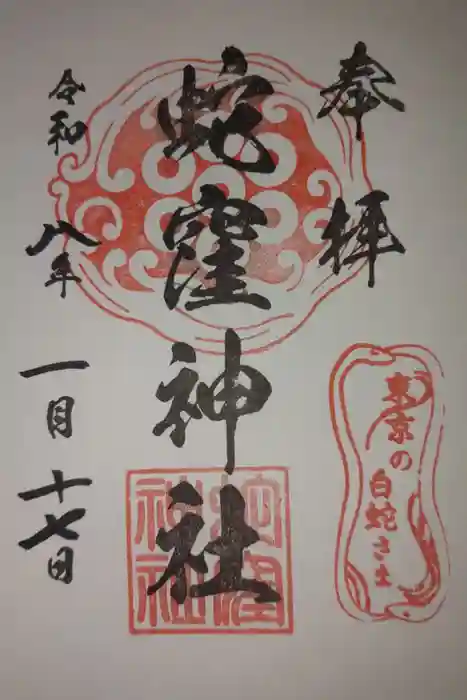 奉拝
蛇窪神社
令和八年一月十七日
東京の
白蛇さま
蛇窪
神社